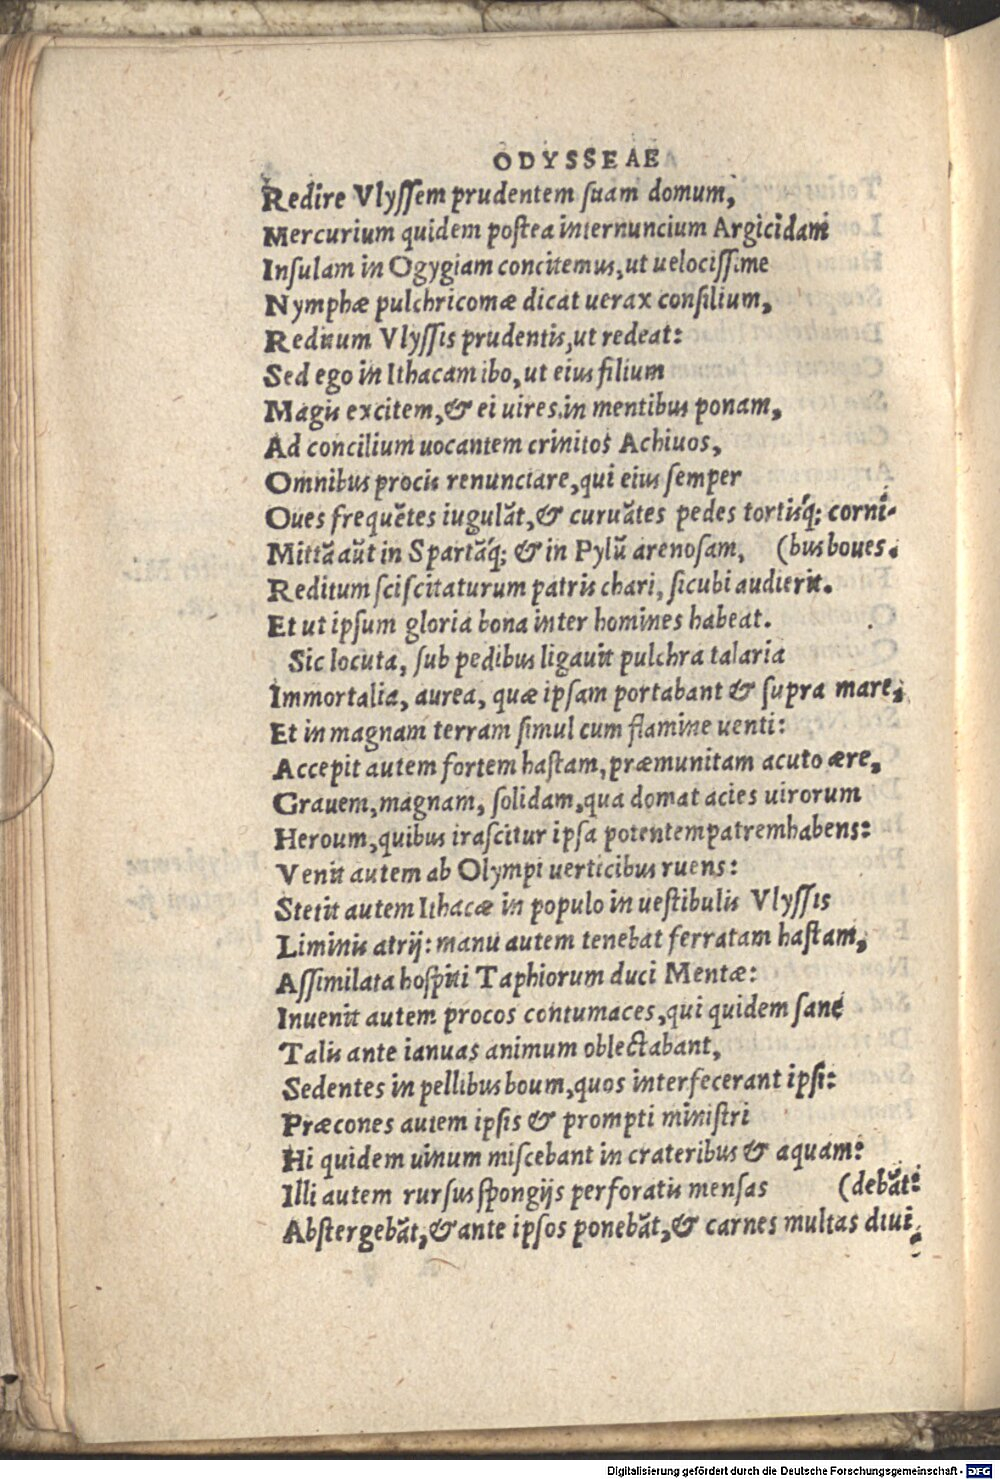 ODYSSEAE
Redire Vlyſſem prudentem ſuam domum,
Mercurium quidem poſtea internuncium Argicidam
Inſulam in Ogygiam concitemus, ut uelociſſime
Nymphæ pulchricomæ dicat uerax conſilium,
Reditum Vlyſſis prudentis, ut redeat:
Sed ego in Ithacam ibo, ut eius filium
Magis excitem, & ei uires in mentibus ponam,
Ad concilium uocantem crinitos Achiuos,
Omnibus procis renunciare, qui eius ſemper
Oues frequẽtes iugulãt, & curuãtes pedes tortisq́; corni-
Mittã aũt in Spartãq́; & in Pylũ arenoſam, (bus boues.
Reditum ſciſcitaturum patris chari, ſicubi audierit.
Et ut ipſum gloria bona inter homines habeat.
Sic locuta, ſub pedibus ligauit pulchra talaria
Immortalia, aurea, quæ ipſam portabant & ſupra mare,
Et in magnam terram ſimul cum flamine uenti:
Accepit autem fortem haſtam, præmunitam acuto ære,
Grauem, magnam, ſolidam, qua domat acies uirorum
Heroum, quibus iraſcitur ipſa potentem patrem habens:
Venit autem ab Olympi uerticibus ruens:
Stetit autem Ithacæ in populo in ueſtibulis Vlyſſis
Liminis atrij: manu autem tenebat ferratam haſtam,
Aſſimilata hoſpiti Taphiorum duci Mentæ:
Inuenit autem procos contumaces, qui quidem ſanè
Talis ante ianuas animum oblectabant,
Sedentes in pellibus boum, quos interfecerant ipſi:
Præcones autem ipſis & prompti miniſtri
Hi quidem uinum miſcebant in crateribus & aquam:
Illi autem rurſus ſpongijs perforatis menſas (debãt:
Abſtergebãt, & ante ipſos ponebãt, & carnes multas diui-
Digitalisierung gefördert durch die Deutsche Forschungsgemeinschaft - DFG